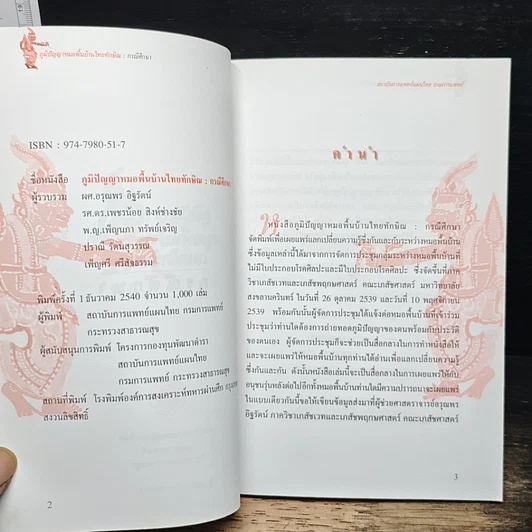 ภูมิปัญญาหมอพื้นบ้านไทยทักษิณ : กรณีศึกษา
ISBN : 974-7980-51-7
ชื่อหนังสือ ภูมิปัญญาหมอพื้นบ้านไทยทักษิณ : กรณีศึกษา
ผู้รวบรวม ผศ.อรุณพร อิฐรัตน์
รศ.ดร.เพชรน้อย สิงห์ช่างชัย
พ.ญ.เพ็ญนภา ทรัพย์เจริญ
ปราณี รัตนสุวรรณ
เพ็ญศรี ศรีสัจธรรม
พิมพ์ครั้งที่ 1 ธันวาคม 2540 จำนวน 1,000 เล่ม
ผู้พิมพ์ สถาบันการแพทย์แผนไทย กรมการแพทย์
กระทรวงสาธารณสุข
ผู้สนับสนุนการพิมพ์ โครงการกองทุนพัฒนาตำรา
สถาบันการแพทย์แผนไทย
กรมการแพทย์ กระทรวงสาธารณสุข
สถานที่พิมพ์ โรงพิมพ์องค์การสงเคราะห์ทหารผ่านศึก กรุงเทพ
สงวนลิขสิทธิ์
2
สถาบันการแพทย์แผนไทย กรมการแพทย์
คำนำ
หนังสือภูมิปัญญาหมอพื้นบ้านไทยทักษิณ : กรณีศึกษา
จัดพิมพ์เพื่อเผยแพร่แลกเปลี่ยนความรู้ซึ่งกันและกันระหว่างหมอพื้นบ้าน
ซึ่งข้อมูลเหล่านี้ได้มาจากการจัดการประชุมกลุ่มระหว่างหมอพื้นบ้านที่
ไม่มีใบประกอบโรคศิลปะและมีใบประกอบโรคศิลปะ ซึ่งจัดขึ้นที่ภาค
วิชาเภสัชเวทและเภสัชพฤกษศาสตร์ คณะเภสัชศาสตร์ มหาวิทยาลัย
สงขลานครินทร์ ในวันที่ 26 ตุลาคม 2539 และวันที่ 10 พฤศจิกายน
2539 พร้อมกันนั้นผู้จัดการประชุมได้แจ้งต่อหมอพื้นบ้านที่เข้าร่วม
ประชุมว่าท่านใดต้องการถ่ายทอดภูมิปัญญาของตนพร้อมกับประวัติ
ของตนเอง ผู้จัดการประชุมก็จะช่วยเป็นสื่อกลางในการทำหนังสือให้
และจะเผยแพร่ให้หมอพื้นบ้านทุกท่านได้อ่านเพื่อแลกเปลี่ยนความรู้
ซึ่งกันและกัน ดังนั้นหนังสือเล่มนี้จะเป็นสื่อกลางในการเผยแพร่ให้กับ
อนุชนรุ่นหลังต่อไปอีกทั้งหมอพื้นบ้านท่านใดมีความปรารถนาจะเผยแพร่
ในแบบเดียวกันนี้ขอให้เขียนข้อมูลส่งมาที่ผู้ช่วยศาสตราจารย์อรุณพร
อิฐรัตน์ ภาควิชาเภสัชเวทและเภสัชพฤกษศาสตร์ คณะเภสัชศาสตร์
3